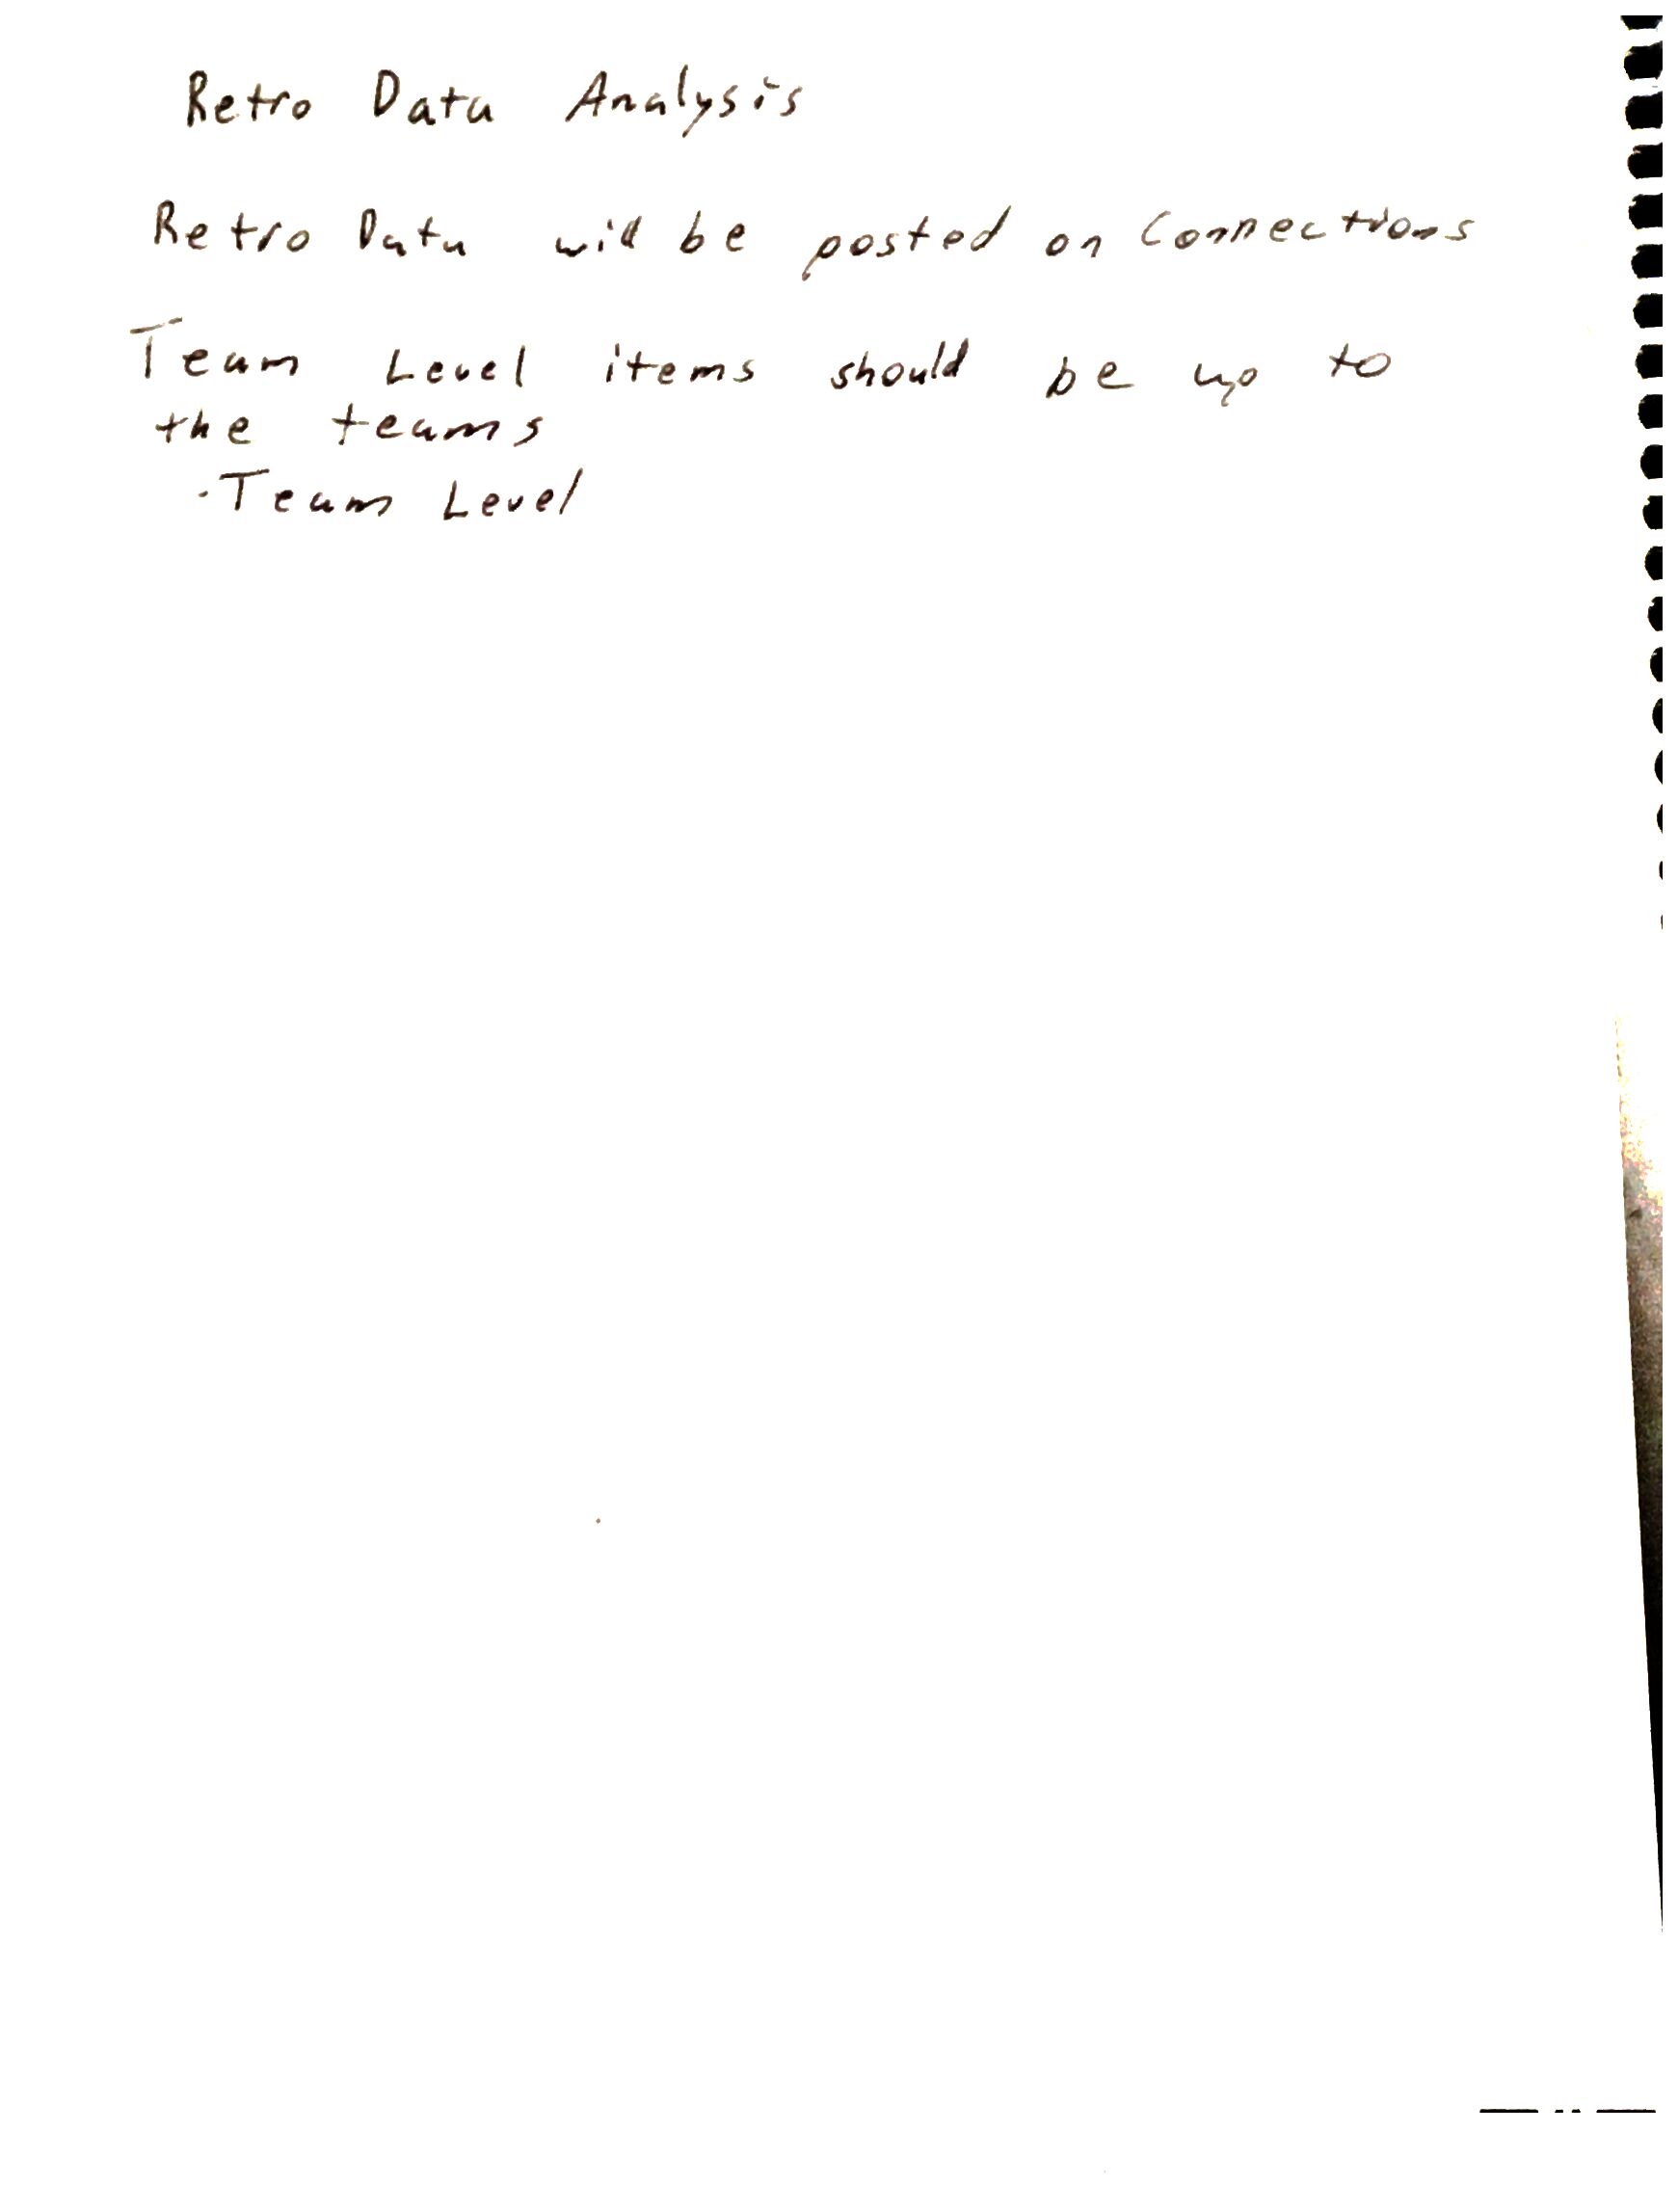 Retro Data Analysis
Retro Data will be posted on Connections
Team Level items should be up to
the teams
· Team Level